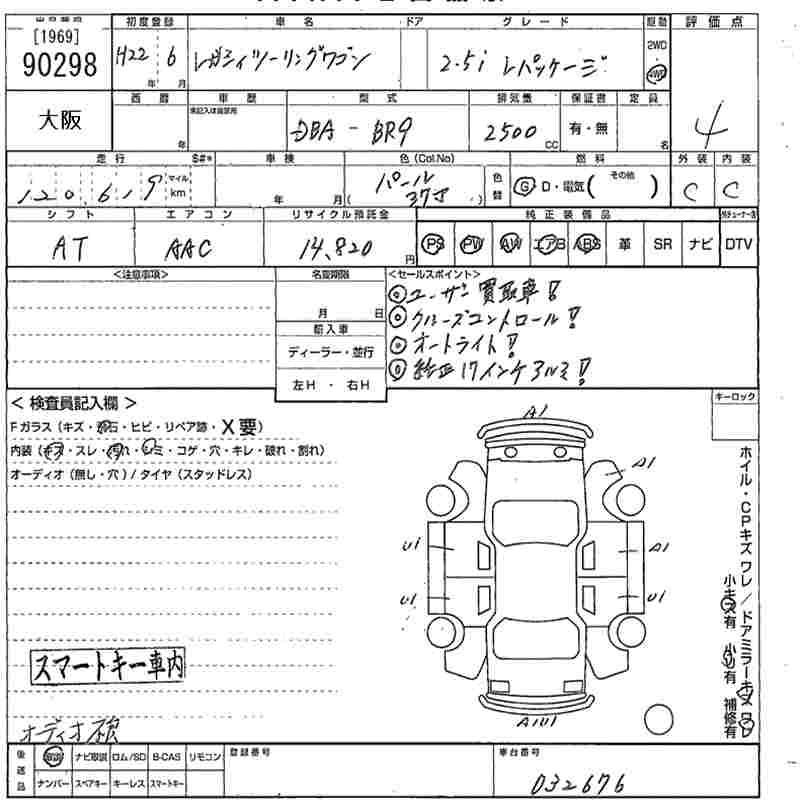 [1969]
90298
初度登録 車名 ドア グレード 駆動 評価点
H22 6 レガシィツーリングワゴン 2.5i Lパッケージ 2WD 4WD
年 月
大阪
西暦 車歴 型式 排気量 保証書 定員
未記入は自家用
年 DBA - BR9 2500 CC 有・無 名
4
走行 S#* 車検 色(Col.No) 燃料 外装 内装
120,619 マイル km 年 月 パール ( 37J ) 色替 G D・電気( その他 ) C C
シフト エアコン リサイクル預託金 純正装備品
AT AAC 14,820 円 PS PW AW エアB ABS 革 SR ナビ DTV
<注意事項> 名変期限 <セールスポイント>
月 日
輸入車
ディーラー・並行
左H ・ 右H
◎ユーザー買取車!
◎クルーズコントロール!
◎オートライト!
◎純正17インチアルミ!
< 検査員記入欄 >
Fガラス(キズ・飛石・ヒビ・リペア跡・X要)
内装(キズ・スレ・汚れ・シミ・コゲ・穴・キレ・破れ・割れ)
オーディオ(無し・穴)/タイヤ(スタッドレス)
キーロック
A1
A1
U1 A1
U1 U1
A1U1
ホイル・CPキズ ワレ/ドアミラーキズ ワレ
小キズ有 小凹有 補修有
スマートキー車内
オーディオ硬
後送品 ナビ取説 ロム/SD B-CAS リモコン
ナンバー スペアキー キーレス スマートキー
登録番号 車台番号
032676